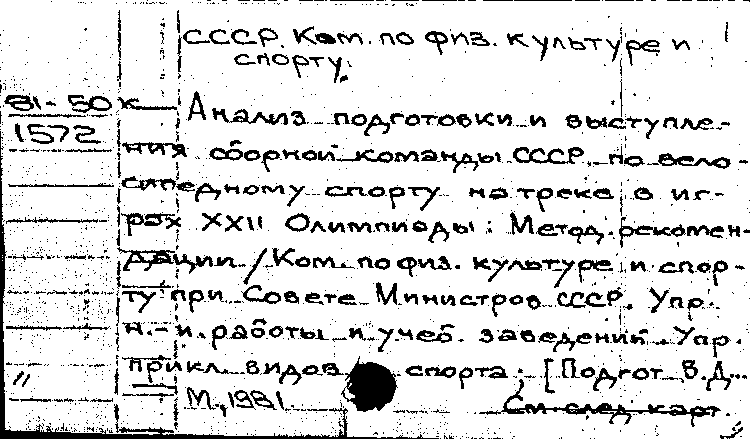 СССР. Ком. по физ. культуре и
спорту.
81-50к
1572
Анализ подготовки и выступле-
ния сборной команды СССР по вело-
сипедному спорту на треке в иг-
рах XXII Олимпиады: Метод. рекомен-
дации / Ком. по физ. культуре и спор-
ту при Совете Министров СССР. Упр.
н.-и. работы и учеб. заведений. Упр.
прикл. видов спорта; [Подгот В.Д...
М., 1981
См след карт.